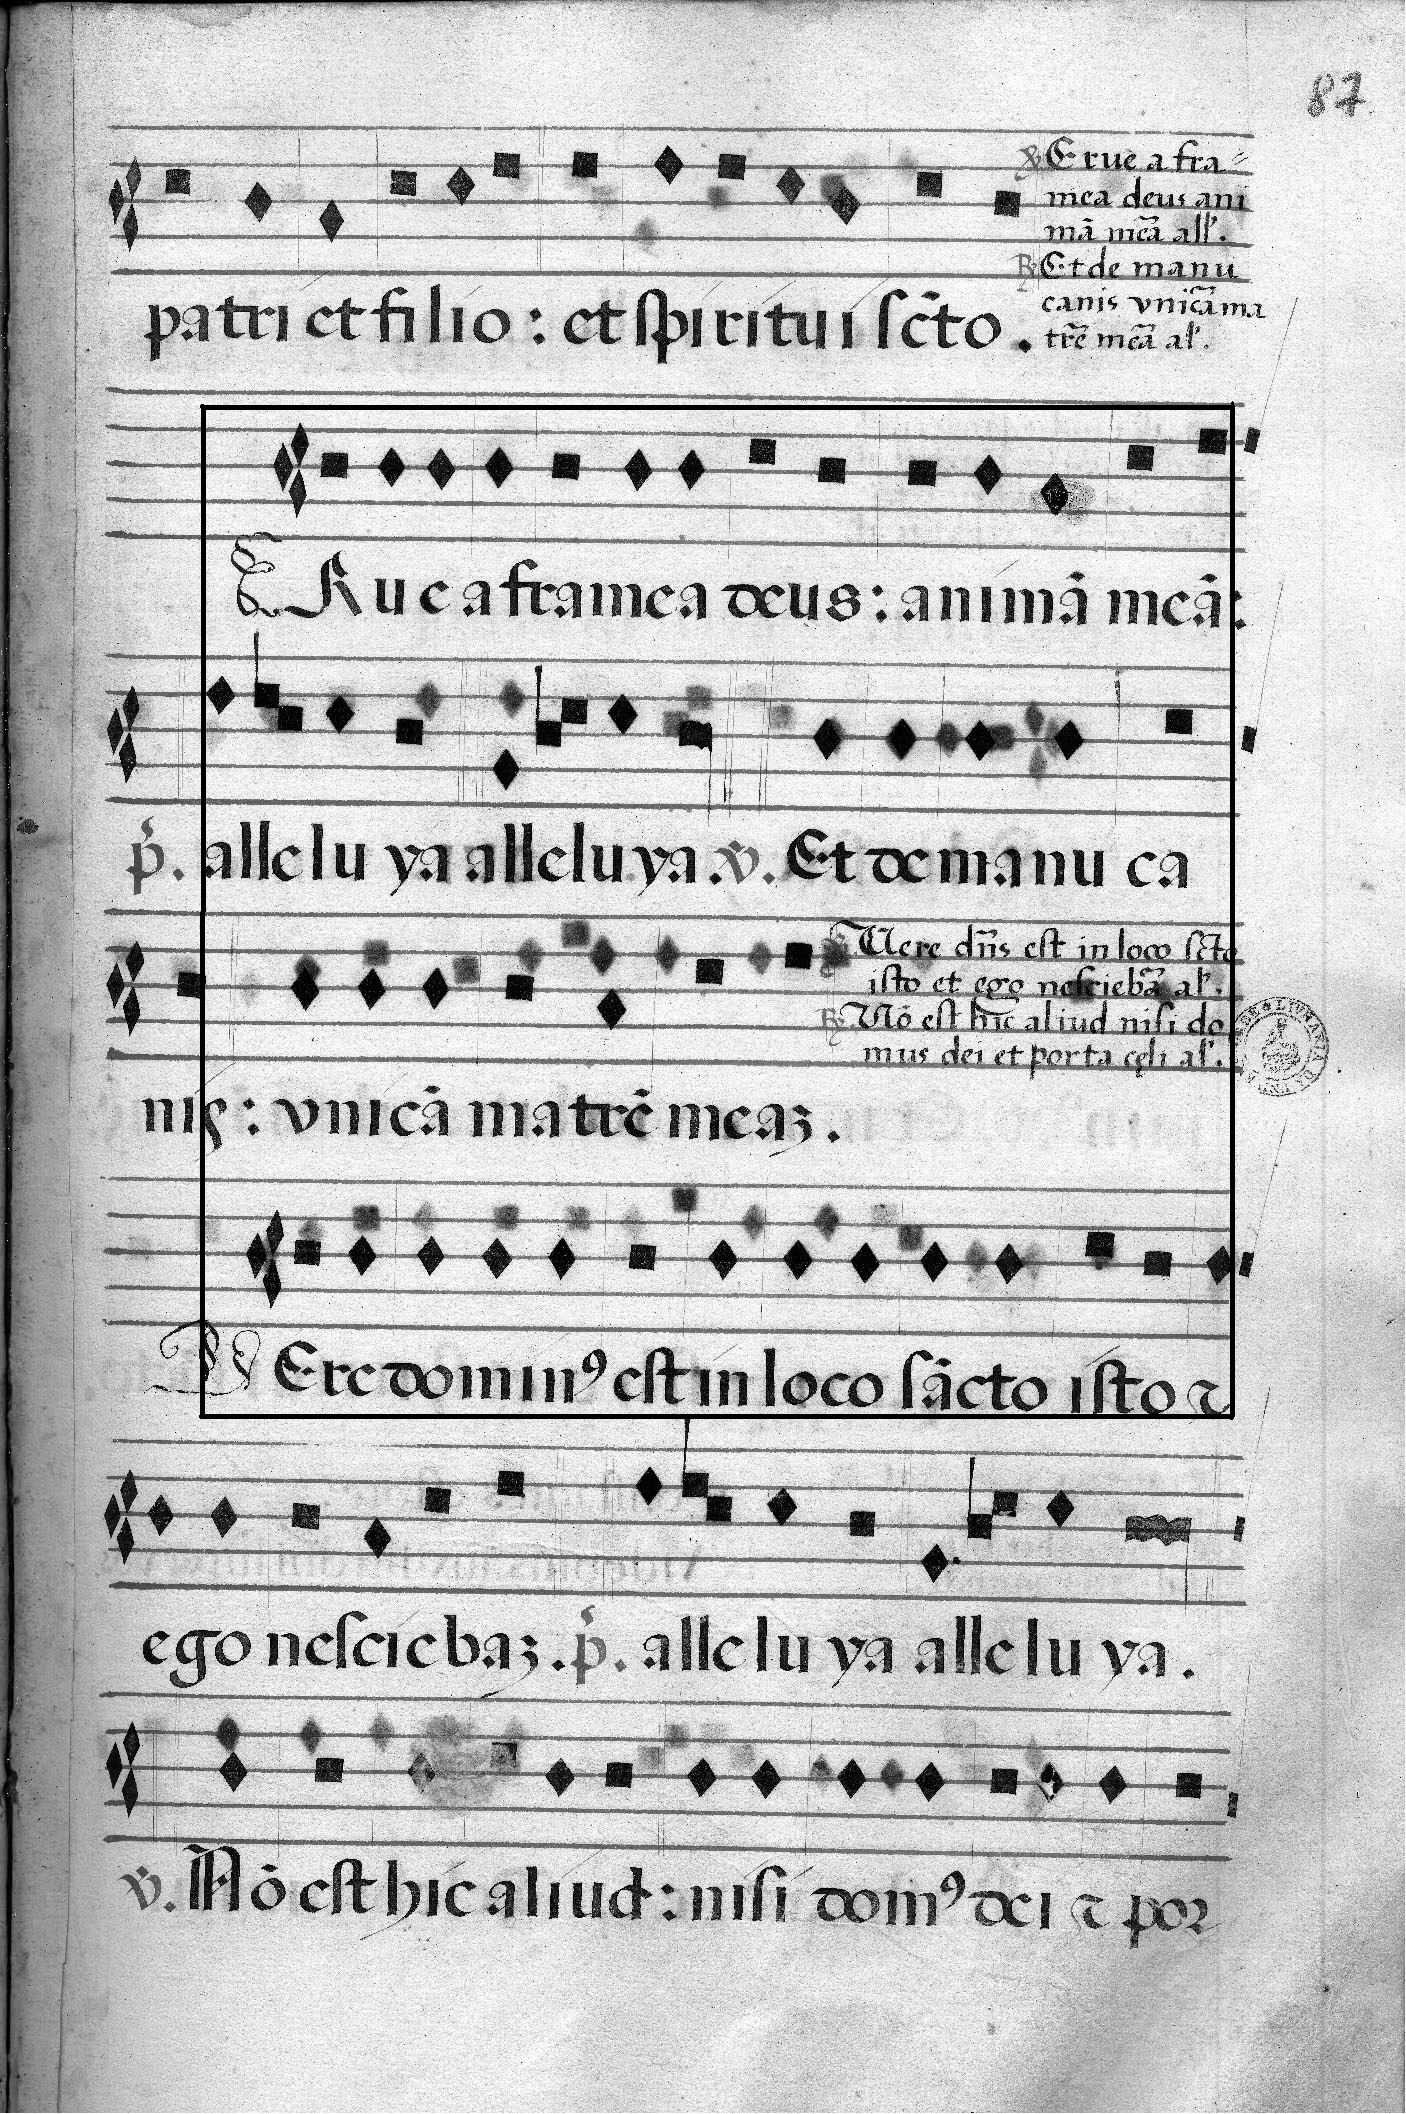 87
℣ Erue a fra-
mea deus ani
mā meā all'.
℟ Et de manu
canis vnicā ma
trē meā al'.
patri et filio : et spiritui sc̄to .
ERue a framea deus : animā meā :
p̄. alleluya alleluya . ℣. Et de manu ca
Vere dn̄s est in loco sc̄to
isto et ego nesciebā al'.
℟ Nō est hic aliud nisi do
mus dei et porta cęli al'.
nis : vnicā matrē meaꝫ .
VEre dominꝰ est in loco sācto isto ⁊
ego nesciebaꝫ . p̄. alleluya alleluya .
℣. Nō est hic aliud : nisi domꝰ dei ⁊ por